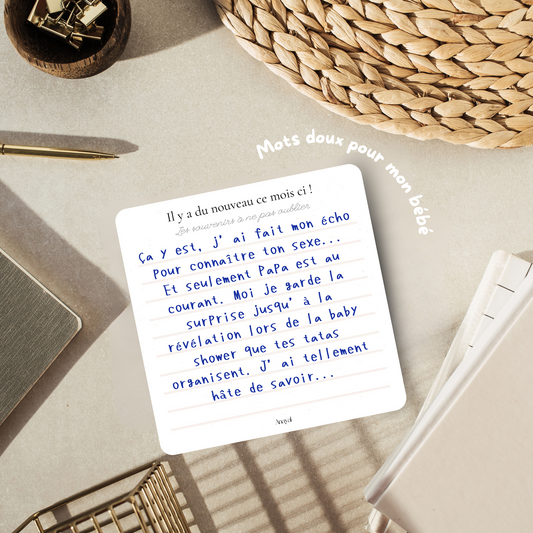 Mots doux pour mon bébé
Il y a du nouveau ce mois ci !
Les souvenirs à ne pas oublier
Ça y est, j' ai fait mon écho
Pour connaître ton sexe...
Et seulement PaPa est au
courant. Moi je garde la
surPrise jusqu' à la
révélation lors de la baby
shower que tes tatas
organisent. J' ai tellement
hâte de savoir...